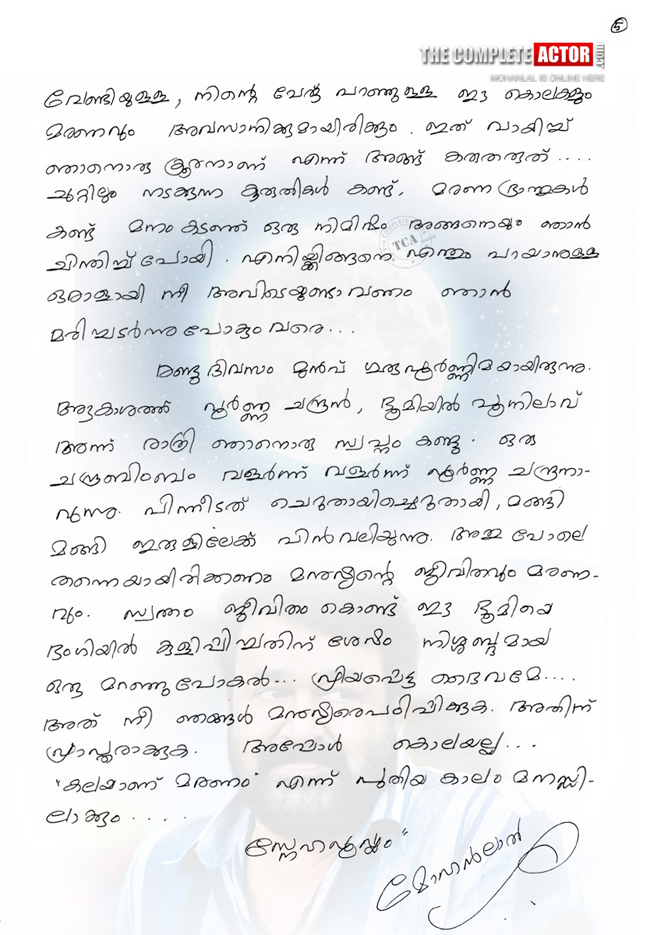 5
THE COMPLETE ACTOR .COM
MOHANLAL IS ONLINE HERE
വേണ്ടിയുള്ള, നിന്റെ പേര് പറഞ്ഞുള്ള ഈ കൊലകളും
മരണവും അവസാനിക്കുമായിരിക്കും. ഇത് വായിച്ച്
ഞാനൊരു ക്രൂരനാണ് എന്ന് അങ്ങ് കരുതരുത്....
ചുറ്റിലും നടക്കുന്ന ക്രൂരതകൾ കണ്ട്, മരണ ഭ്രാന്തുകൾ
കണ്ട് മനം കടഞ്ഞ് ഒരു നിമിഷം അങ്ങനെയും ഞാൻ
ചിന്തിച്ച് പോയി. എനിയ്ക്കിങ്ങനെ എന്തും പറയാനുള്ള
ഒരാളായി നീ അവിടെയുണ്ടാവണം ഞാൻ
മരിച്ചടർന്നു പോകും വരെ...
രണ്ടു ദിവസം മുൻപ് ഗുരുപൂർണ്ണിമയായിരുന്നു.
ആകാശത്ത് പൂർണ്ണ ചന്ദ്രൻ, ഭൂമിയിൽ പൂനിലാവ്
അന്ന് രാത്രി ഞാനൊരു സ്വപ്നം കണ്ടു. ഒരു
ചന്ദ്രബിംബം വളർന്ന് വളർന്ന് പൂർണ്ണ ചന്ദ്രനാ-
വുന്നു. പിന്നീടത് ചെറുതായിച്ചെറുതായി, മങ്ങി
മങ്ങി ഇരുളിലേക്ക് പിൻവലിയുന്നു. അതു പോലെ
തന്നെയായിരിക്കണം മനുഷ്യന്റെ ജീവിതവും മരണ-
വും. സ്വന്തം ജീവിതം കൊണ്ട് ഈ ഭൂമിയെ
ഭംഗിയിൽ കുളിപ്പിച്ചതിന് ശേഷം നിശ്ശബ്ദമായ
ഒരു മറഞ്ഞുപോകൽ... പ്രിയപ്പെട്ട ദൈവമേ....
അത് നീ ഞങ്ങൾ മനുഷ്യരെപഠിപ്പിക്കുക. അതിന്
പ്രാപ്തരാക്കുക. അപ്പോൾ കൊലയല്ല...
"കലയാണ് മരണം" എന്ന് പുതിയ കാലം മനസ്സി-
ലാക്കും....
സ്നേഹപൂർവ്വം
മോഹൻലാൽ
TCA